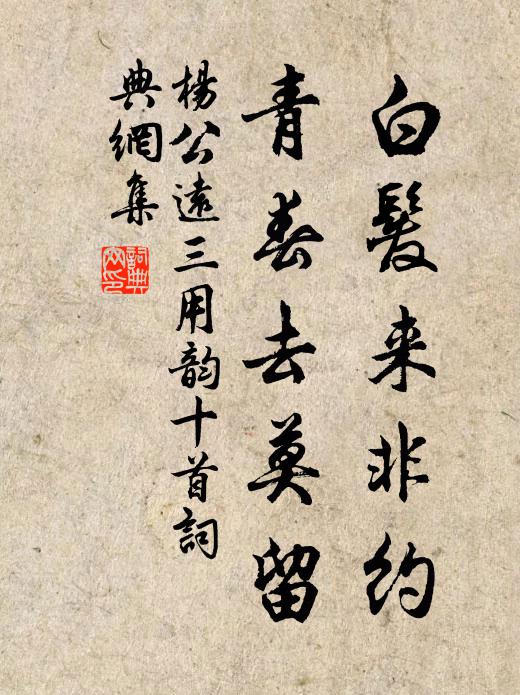 白髮来非約
青春去莫留
楊公遠三用韵十首詞
典網集
詞典
文印